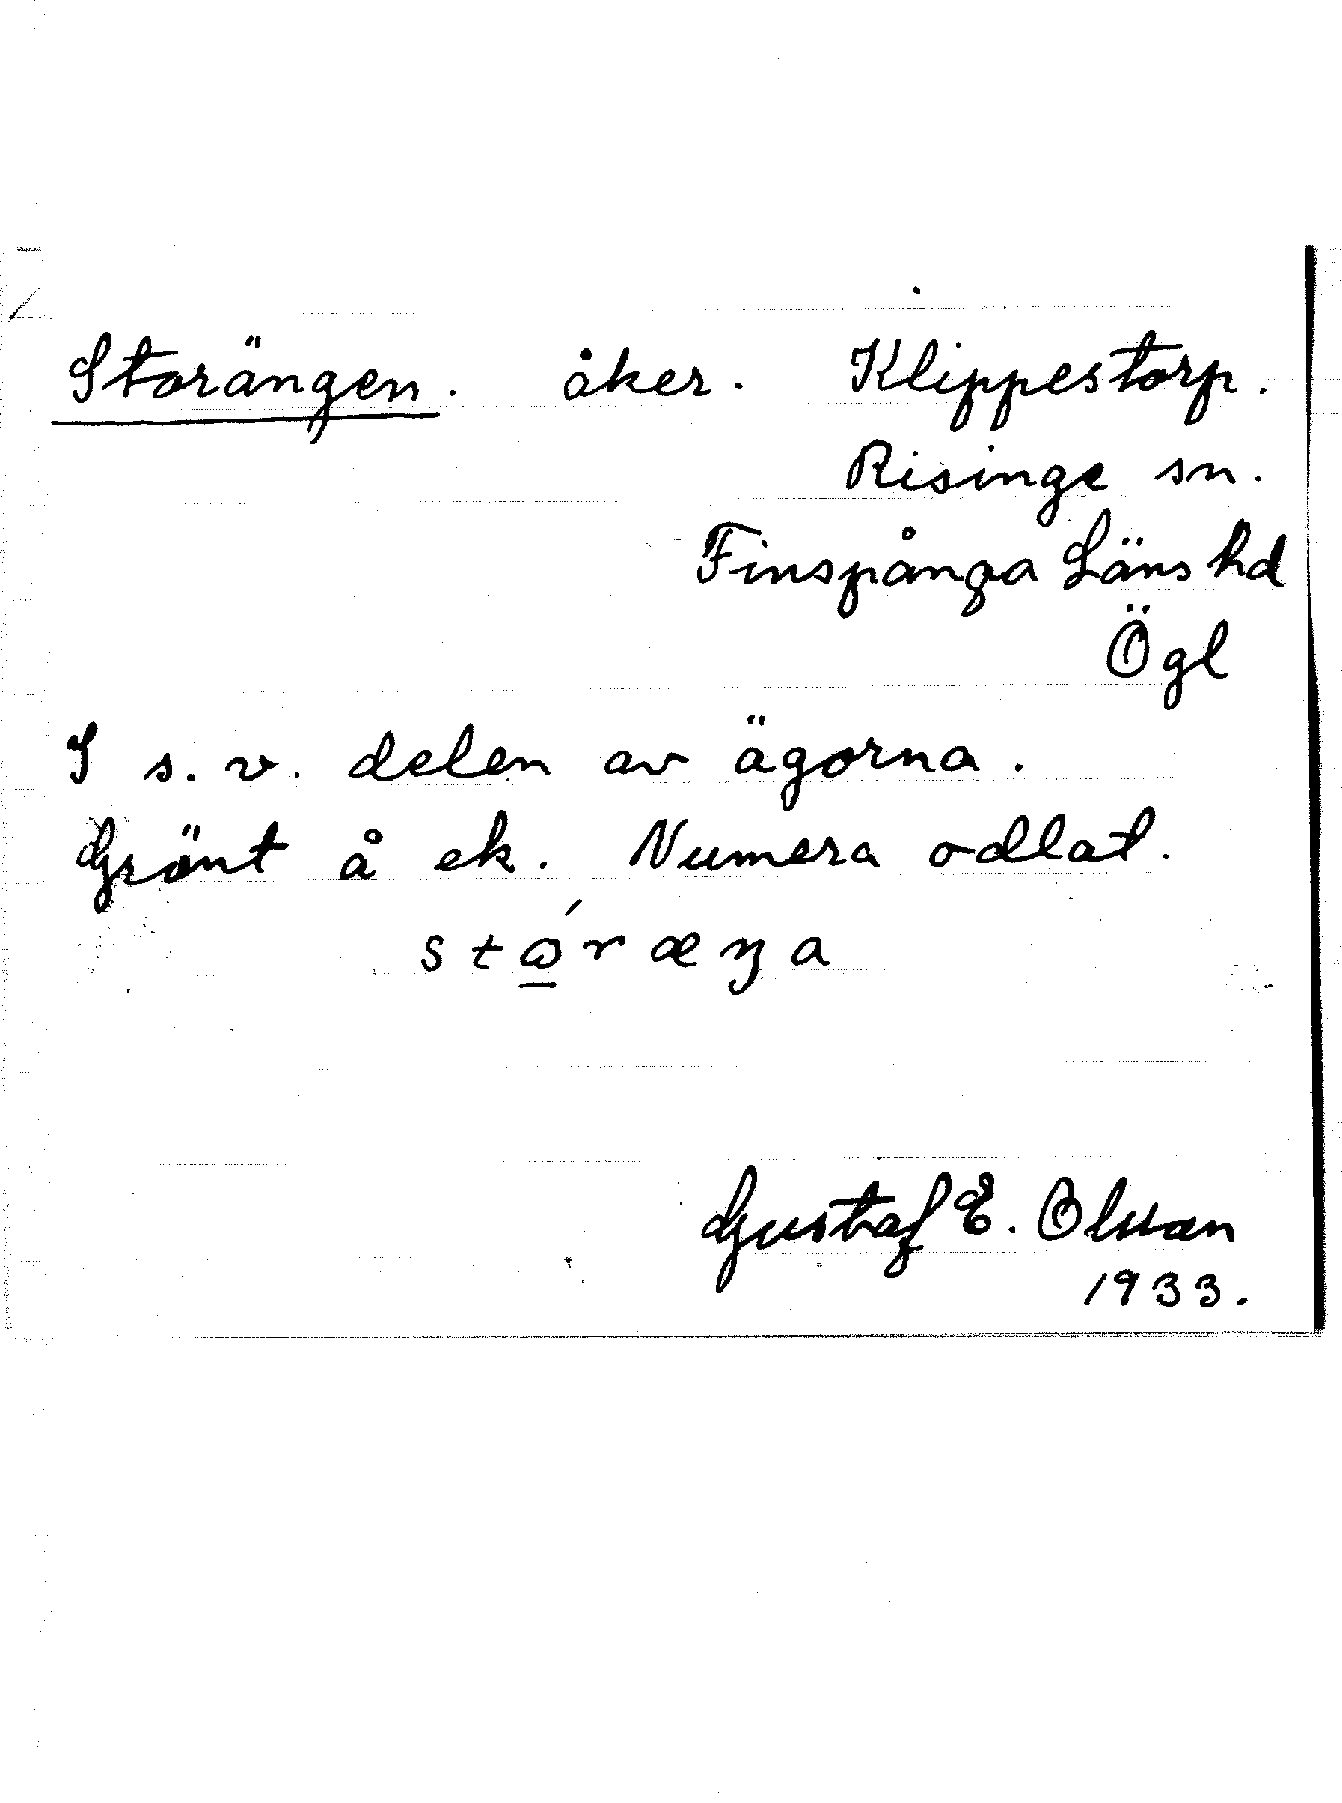 Storängen. åker. Klippestorp.
Risinge sn.
Finspånga Läns hd
Ögl
I s.v. delen av ägorna.
Grönt å ek. Numera odlat.
stώ̲ræŋa
Gustaf E. Olsson
1933.